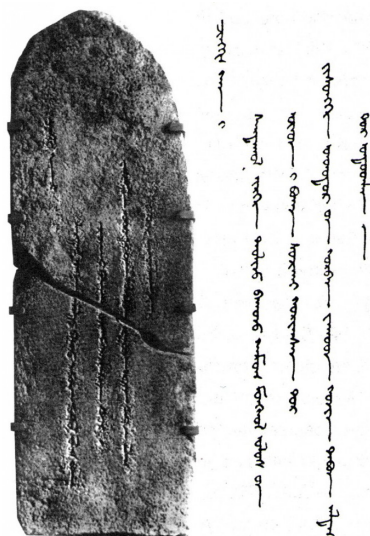 ᠴᠢᠩᠭᠢᠰ ᠬᠠᠨ ᠢ
ᠰᠠᠷᠲᠠᠭᠤᠯ ᠢᠷᠭᠡ ᠳᠠᠭᠤᠯᠢᠵᠤ ᠪᠠᠭᠤᠵᠤ ᠬᠠᠮᠤᠭ ᠮᠣᠩᠭᠣᠯ ᠤᠯᠤᠰ ᠤᠨ
ᠨᠣᠶᠠᠳ ᠢ ᠪᠤᠬᠠ ᠰᠣᠴᠢᠭᠠᠢ ᠬᠤᠷᠢᠭᠰᠠᠨ ᠳᠤᠷ
ᠶᠢᠰᠦᠩᠭᠡ ᠣᠨᠲᠤᠳᠤᠷᠤᠨ ᠭᠤᠷᠪᠠᠨ ᠵᠠᠭᠤᠳ ᠭᠤᠴᠢᠨ ᠲᠠᠪᠤᠨ ᠠᠯᠳᠠᠰ
ᠲᠤᠷ ᠣᠨᠲᠤᠳᠤᠯᠠᠭᠠ